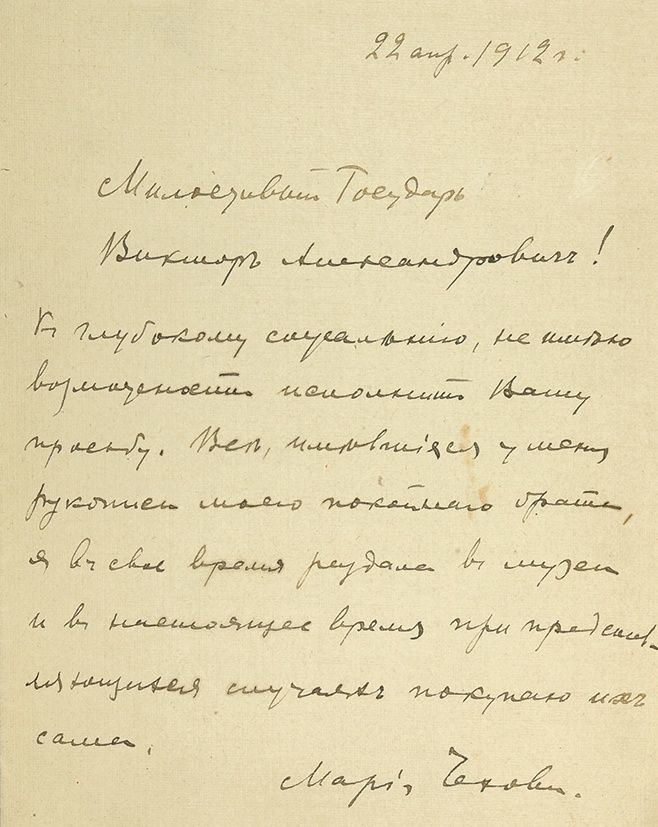 22 апр. 1912 г.
Милостивый Государь
Викторъ Александровичъ!
Къ глубокому сожалѣнію, не имѣю
возможности исполнить Вашу
просьбу. Всѣ, имѣвшіяся у меня
рукописи моего покойнаго брата,
я въ свое время раздала въ музеи
и въ настоящее время при представ-
ляющихся случаяхъ покупаю ихъ
сама.
Марія Чехова.